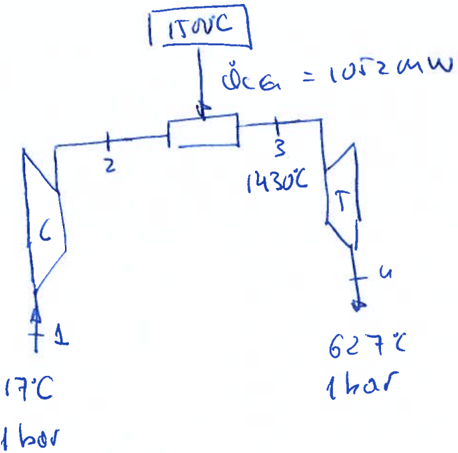 1500°C
Q̇CG = 1052 MW
2
3
1430°C
C
T
1
4
17°C
1 bar
627°C
1 bar